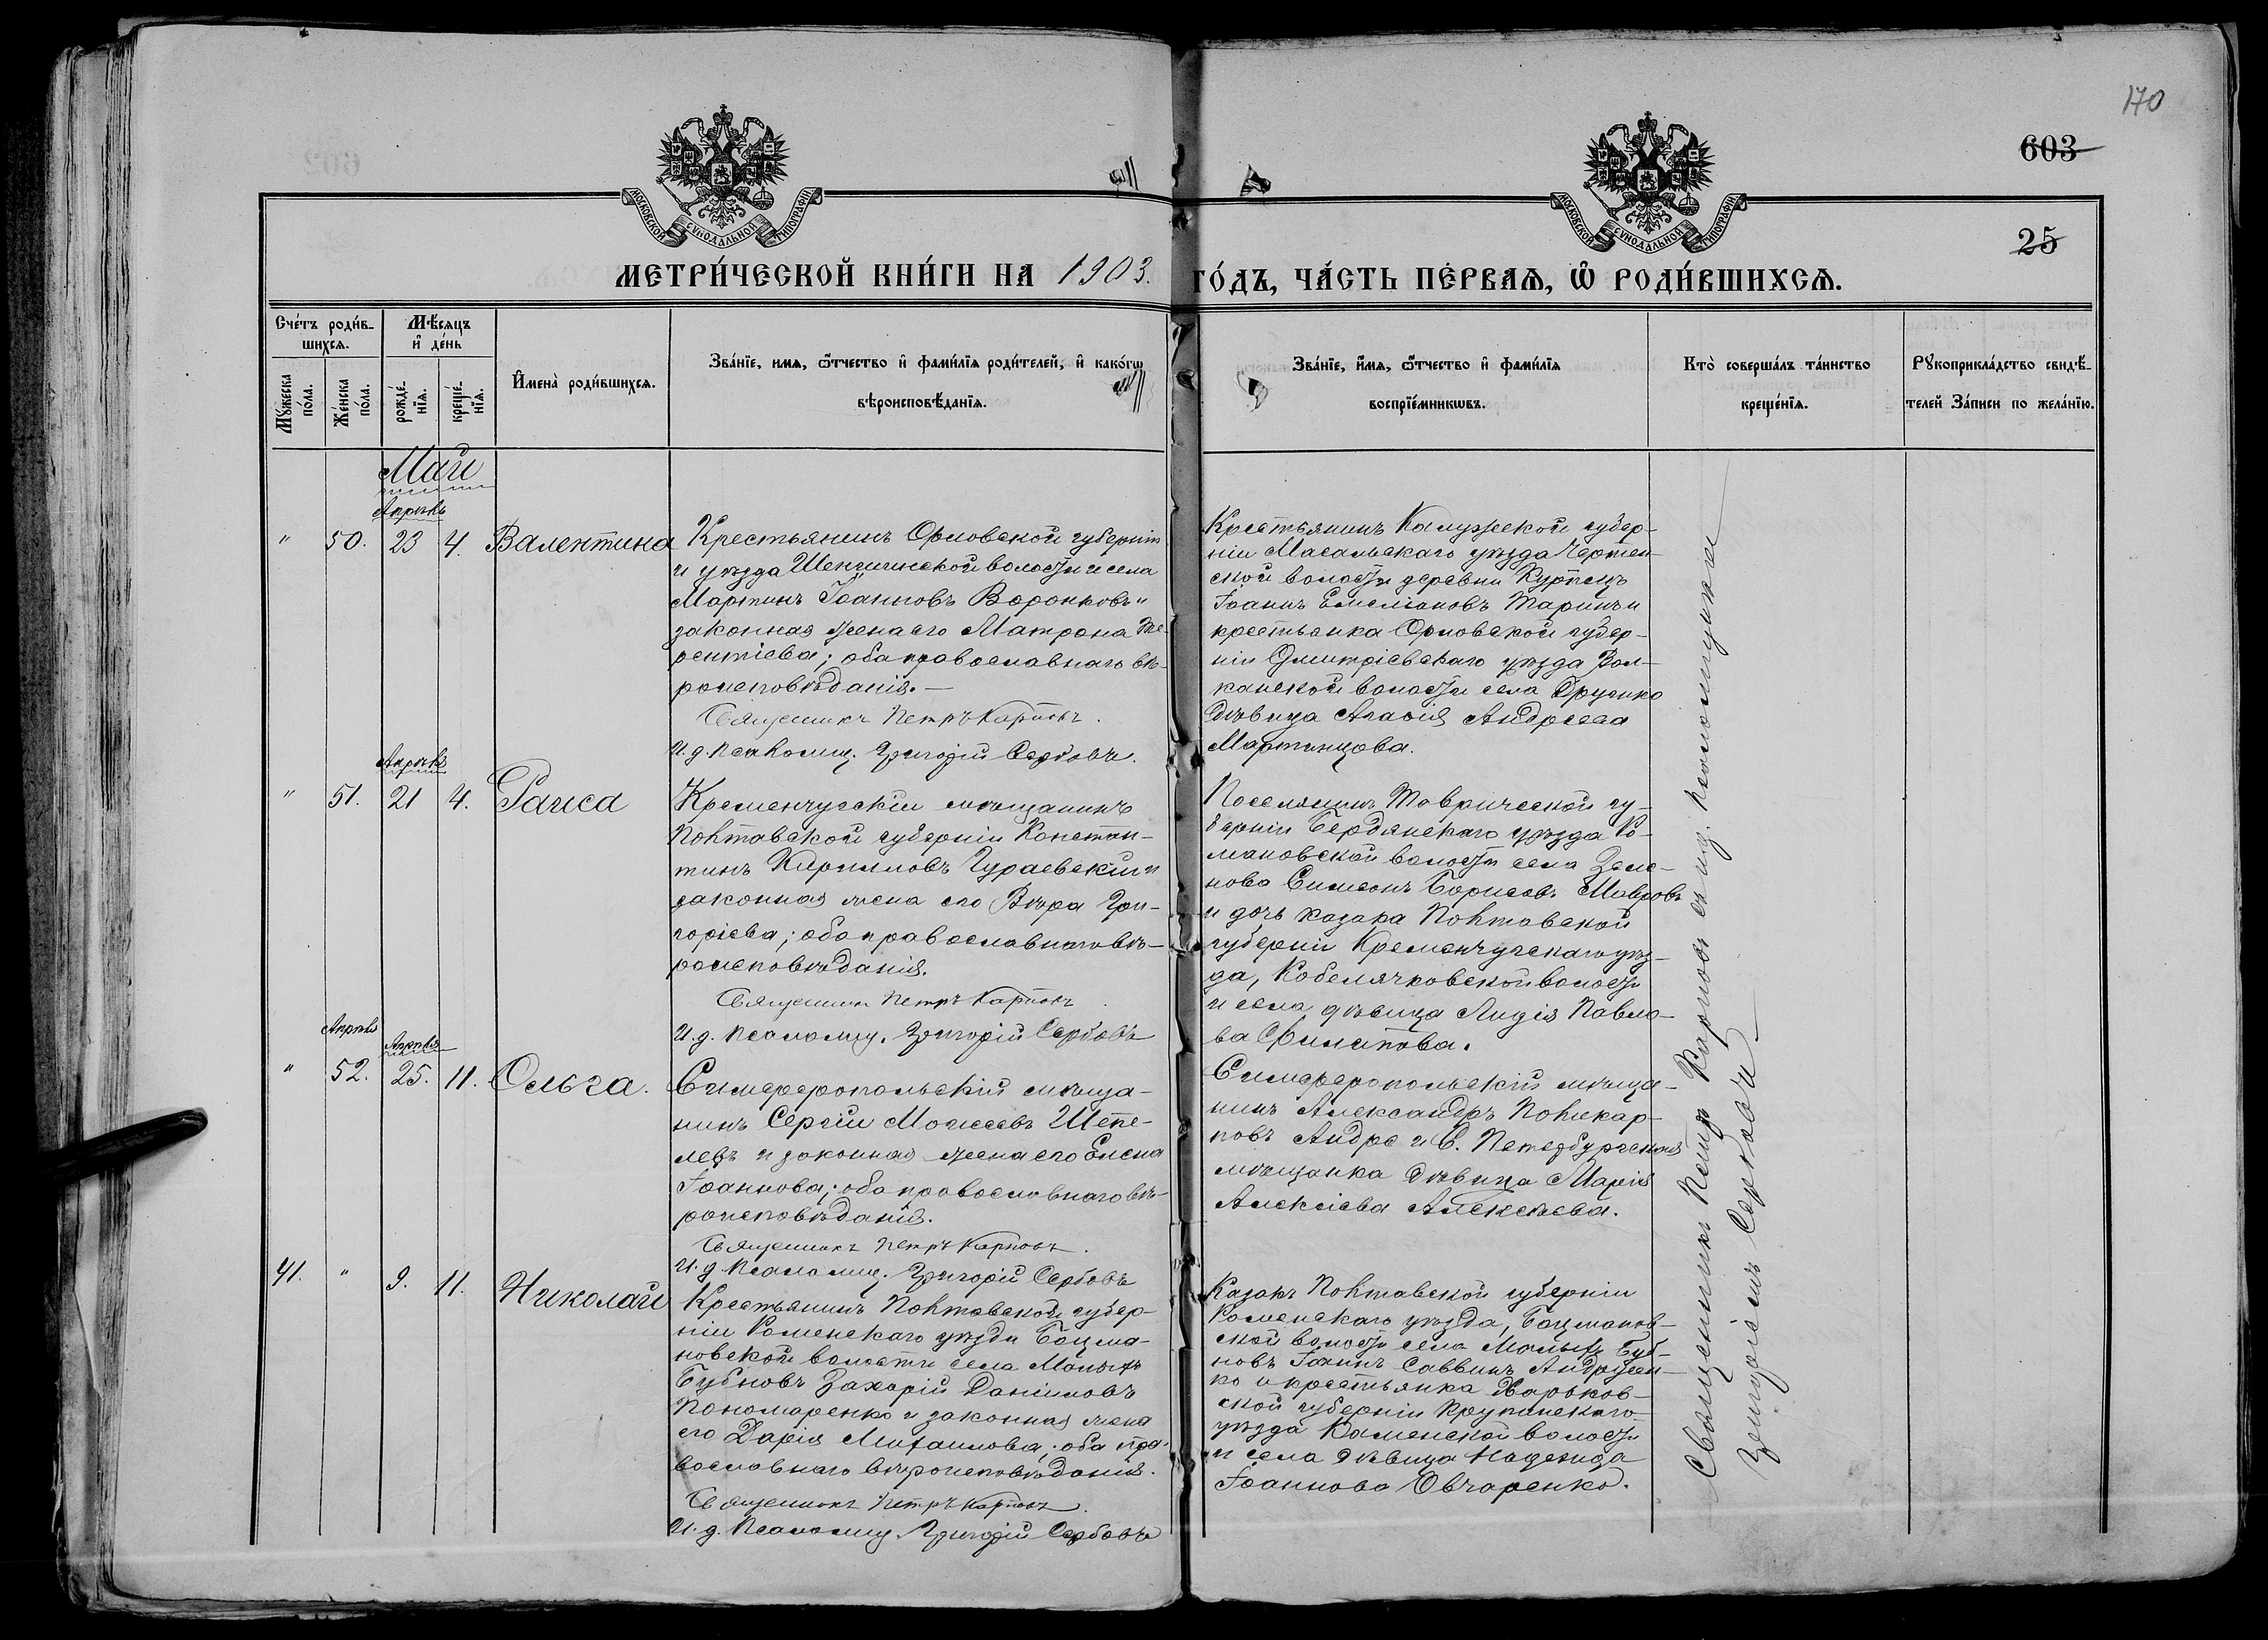 170
603
25
МОСКОВСКОЙ СѴНОДАЛЬНОЙ ТИПОГРАФІИ
МОСКОВСКОЙ СѴНОДАЛЬНОЙ ТИПОГРАФІИ
МЕТРИ́ЧЕСКОЙ КНИ́ГИ НА 1903.
ГО́ДЪ, ЧА́СТЬ ПЕ́РВАѦ, Ѡ҆ РОДИ́ВШИХСѦ.
Сче́тъ роди́в-
шихсѧ.
Мѣ́сѧцъ
и҆ де́нь
Мꙋ́жеска
по́ла.
Же́нска
по́ла.
рожде́-
нїѧ.
креще́-
нїѧ.
И҆мена̀ роди́вшихсѧ.
Зва́нїе, имѧ, ѻ҆́тчество и҆ фами́лїѧ роди́телей, и҆ како́гѡ
вѣроисповѣ́данїѧ.
Зва́нїе, и҆́мѧ, ѻ҆́тчество и҆ фами́лїѧ
воспрїе́мникѡвъ.
Кто̀ соверша́лъ та́инство
креще́нїѧ.
Рꙋкоприкла́дство свидѣ́-
телей За́писи по жела́нїю.
Май
Апрѣль
" 50. 23 4. Валентина
Крестьянинъ Орловской губерніи
и уѣзда Шенгинской волости и села
Мартинъ Іоанновъ Воронковъ и
законная жена его Матрона Те-
рентіева; оба православнаго вѣ-
роисповѣданія.—
Священникъ Петръ Карповъ.
И. д. Псаломщ. Григорій Сербовъ.
Крестьянинъ Калужской губер-
ніи Масальскаго уѣзда Чертен-
ской волости деревни
Іоаннъ Емеліановъ Таринъ и
крестьянка Орловской губер-
ніи Дмитріевскаго уѣзда Вол-
канской волости села
дѣвица Агафія Андреева
Мартинцова.
Апрѣль
" 51. 21 4. Раиса
Кременчугскій мѣщанинъ
Полтавской губерніи Констан-
тинъ Кирилловъ Гураевскій и
законная жена его Вѣра Гри-
горіева; оба православнаго вѣ-
роисповѣданія.
Священникъ Петръ Карповъ.
И. д. Псаломщ. Григорій Сербовъ
Поселянинъ Таврической гу-
берніи Бердянскаго уѣзда Ро-
мановской волости села Зеле-
ново Симеонъ Борисовъ Мавровъ
и дочь казака Полтавской
губерніи Кременчугскаго уѣз-
да, Кобелячковской волости
и села дѣвица Лидія Павло-
ва Филипова.
Апрѣль
Апрѣля
" 52. 25. 11. Ольга.
Симферопольскій мѣща-
нинъ Сергій Моисеевъ Шепе-
левъ и законная жена его Елена
Іоаннова; оба православнаго вѣ-
роисповѣданія.
Священникъ Петръ Карповъ.
И. д. Псаломщ. Григорій Сербовъ
Симферопольскій мѣща-
нинъ Александръ Поликар-
повъ Андре и С. Петербургская
мѣщанка дѣвица Марія
Алексіева Алексѣева.
41. " 9. 11. Николай
Крестьянинъ Полтавской губер-
ніи Роменскаго уѣзда Бацма-
новской волости села Малыхъ
Бубновъ Захарій Даніиловъ
Пономаренко и законная жена
его Дарія Михаилова; оба пра-
вославнаго вѣроисповѣданія.
Священникъ Петръ Карповъ.
И. д. Псаломщ. Григорій Сербовъ
Казакъ Полтавской губерніи
Роменскаго уѣзда, Бацманов-
ской волости села Малыхъ Буб-
новъ Іоаннъ Саввинъ Андрусен-
ко и крестьянка Харьков-
ской губерніи Купянскаго
уѣзда Каменской волости
и села дѣвица Надежда
Іоаннова Овчаренко.
Священникъ Петръ Карповъ съ и.д. псаломщика
Григоріемъ Сербовъ